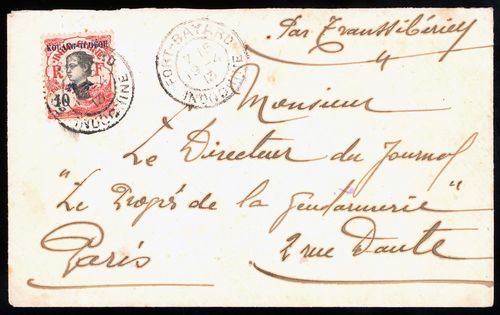 KOUANG-TCHÉOU
R F
10
INDOCHINE
FORT-BAYARD
INDOCHINE
Par Transsibérien
Monsieur
Le Directeur du Journal
"Le Progrés de la Gendarmerie"
Paris 2 rue Dante